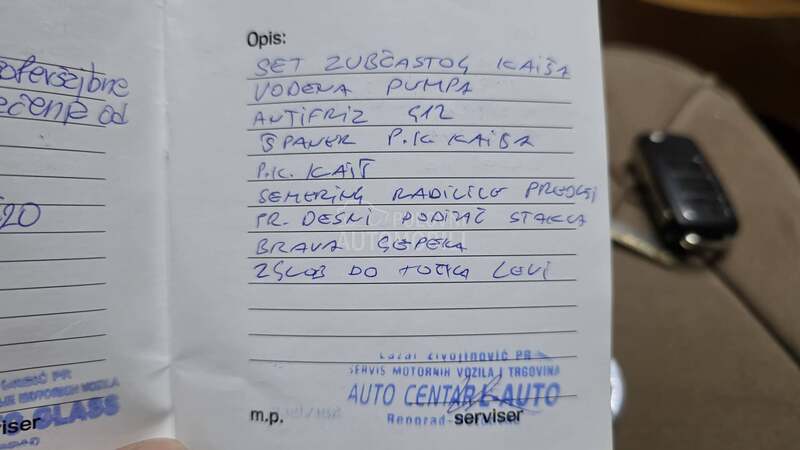 Opis:
SET ZUBČASTOG KAIŠA
VODENA PUMPA
ANTIFRIZ G12
ŠPANER P.K. KAIŠA
P.K. KAIŠ
SEMERING RADILICE PREDNJI
PR. DESNI PODIZAČ STAKLA
BRAVA GEPEKA
ZGLOB DO TOČKA LEVI
Lazar Živojinović PR
SERVIS MOTORNIH VOZILA I TRGOVINA
AUTO CENTAR L-AUTO
Beograd-
m.p.
serviser
ečenje od
20
MOTORNIH VOZILA
GLASS
viser
POLOVNI
AUTOMOBILI